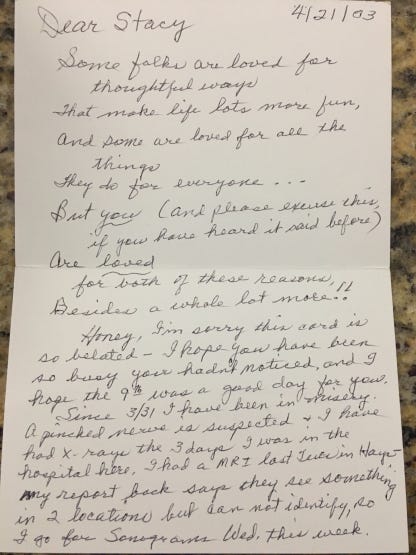 Dear Stacy 4/21/03
Some folks are loved for
thoughtful ways
That make life lots more fun,
And some are loved for all the
things
They do for everyone . . .
But you (and please excuse this,
if you have heard it said before)
Are loved
for both of these reasons,
Besides a whole lot more..!!
Honey, I'm sorry this card is
so belated – I hope you have been
so busy your hadn't noticed, and I
hope the 9th was a good day for you.
Since 3/31 I have been in misery.
A pincked nerve is suspected. I have
had x-rays the 3 days I was in the
hospital here, I had a MRI last Tues in Hays –
my report back says they see something
in 2 locations but can not identify, so
I go for Sonograms Wed. this week.